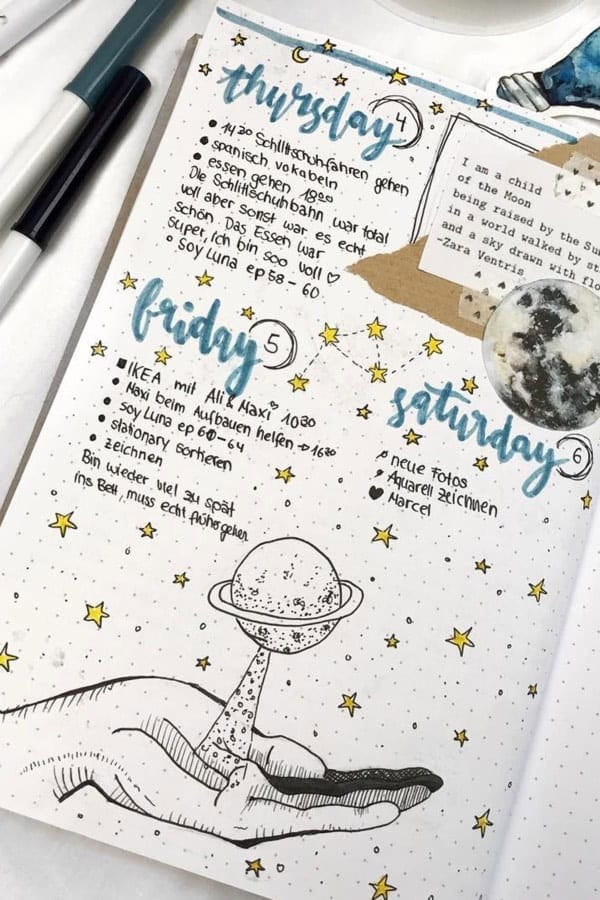 thursday 4
• 1430 Schlittschuhfahren gehen
• spanisch vokabeln
• essen gehen 1800
Die Schlittschuhbahn war total
voll aber sonst war es echt
schön. Das Essen war
super, ich bin soo voll ♡
• Soy Luna ep 58 - 60
I am a child
of the Moon
being raised by the Sun
in a world walked by
and a sky drawn with
-Zara Ventris
friday 5
■ IKEA mit Ali & Maxi 1030
• Maxi beim Aufbauen helfen → 1630
• Soy Luna ep 60 - 64
• stationary sortieren
• zeichnen
Bin wieder viel zu spät
ins Bett, muss echt früher gehen
saturday 6
neue Fotos
Aquarell zeichnen
♥ Marcel